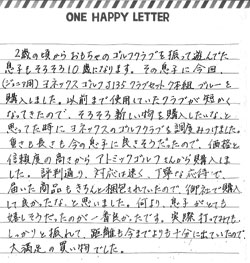 ONE HAPPY LETTER
2歳の頃からおもちゃのゴルフクラブを振って遊んでた
息子もそろそろ10歳になります。その息子に今回、
(ジュニア用)ヨネックスゴルフJ135クラブセット7本組ブルーを
購入しました。以前まで使用していたクラブが短かく
なってきたので、そろそろ新しい物を購入したいな、と
思ってた時にヨネックスのゴルフクラブを調度みつけました。
重さも長さも今の息子に良さそうだったので、価格と
信頼度の高さからアトミックゴルフさんから購入しま
した。評判通り、対応は速く、丁寧な応待で、
届いた商品もきちんと梱包されていたので、御社で購入
して良かったな、と思いました。何より、息子がとても
嬉しそうだったのが一番良かったです。実際打ってみても、
しっかりと振れて、距離も今までよりも十分に出ていたので、
大満足の買い物でした。